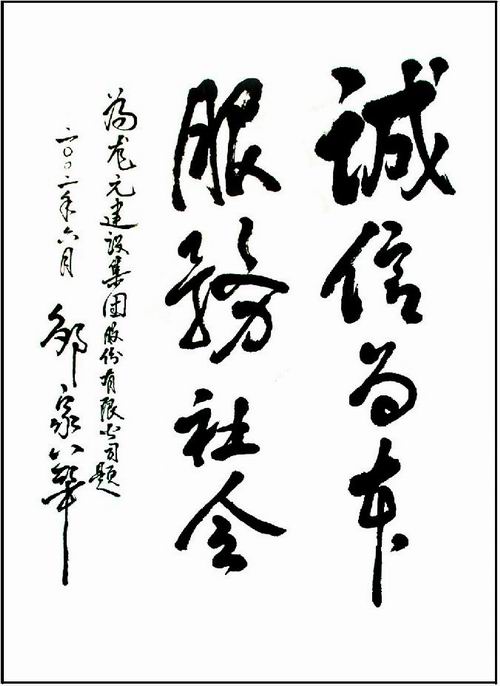 誠信为本
服務社会
为龙元建设集团股份有限公司题
二〇〇二年六月
邹家华